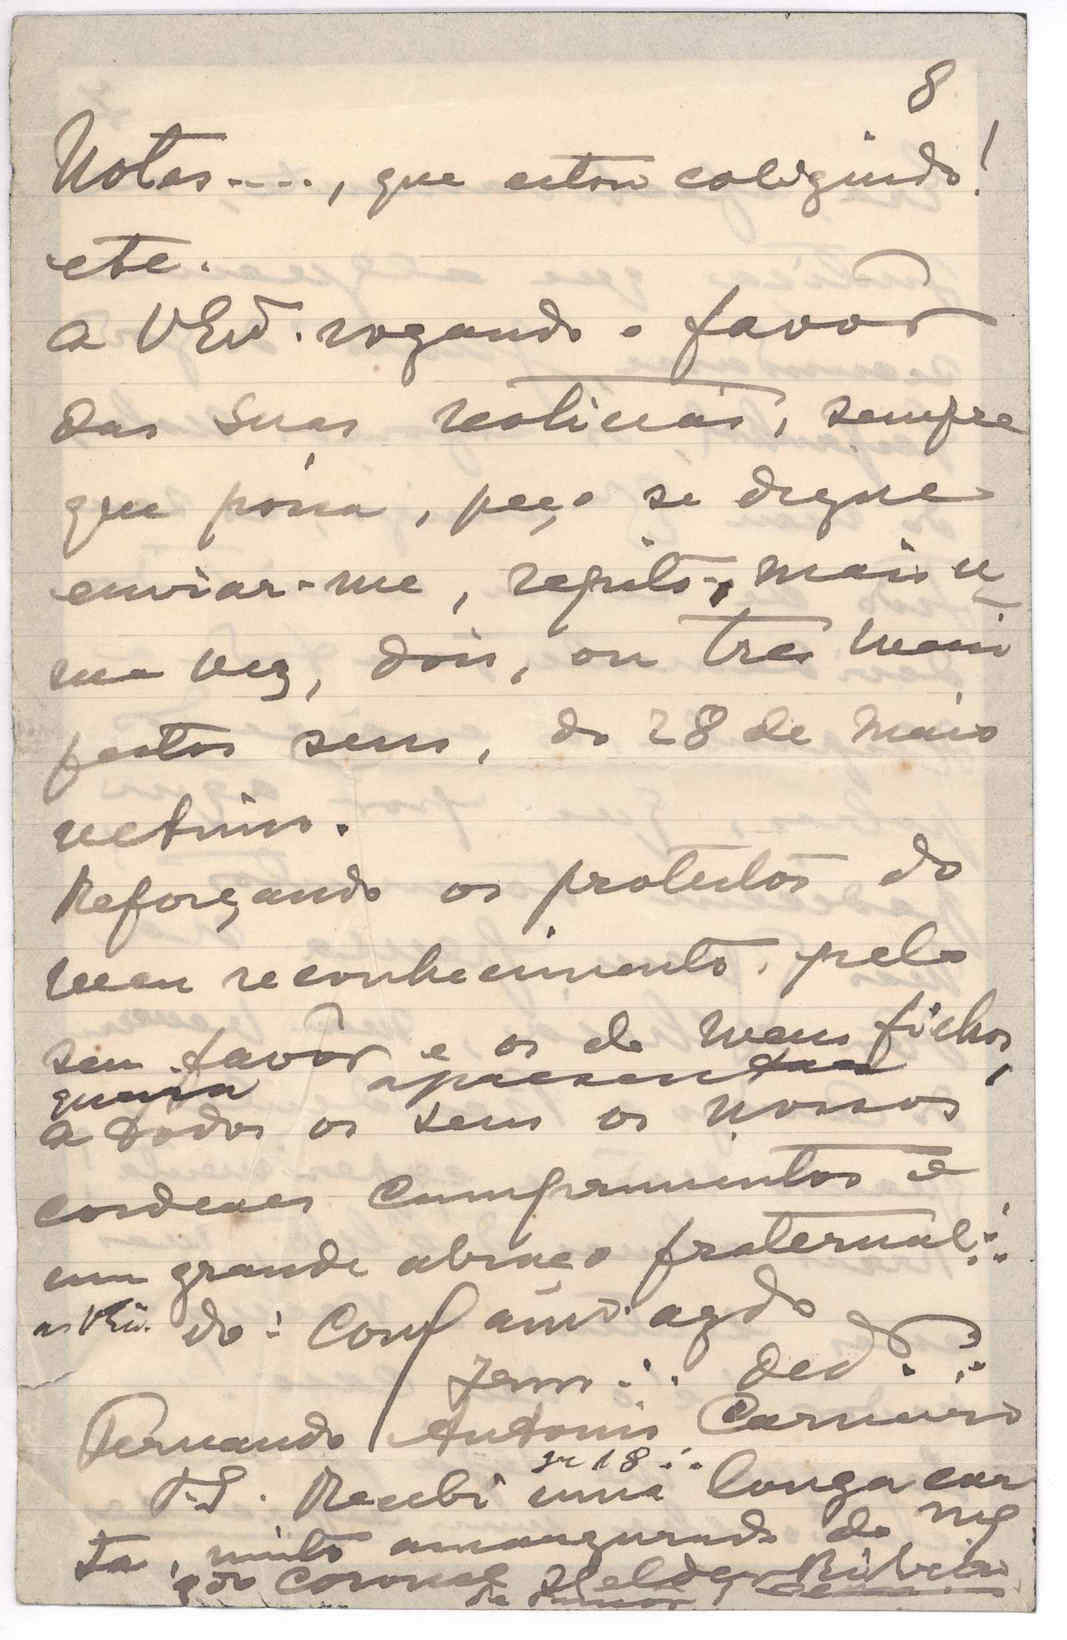 8
Notas...., que estou coligindo!
etc.
A VExª. rogando o favor
das suas noticias, sempre
que possa, peço se digne
enviar-me, repito, mais u
ma vez, dois, ou tres mani
festos seus, do 28 de Maio
ultimo.
Reforçando os protestos do
meu reconhecimento, pelo
seu favôr e os de meus filhos,
queira apresentar
a todos os seus os nossos
cordeaes cumprimentos e
um grande abraço fraternal∴
a VExª. do∴ Conf amº. agdº
∴ ded ∴
Fernando Antonio Carneiro
gr 18∴
P.S. Recebi uma longa car
ta, muito amargurado do
Coronel Helder Ribeiro